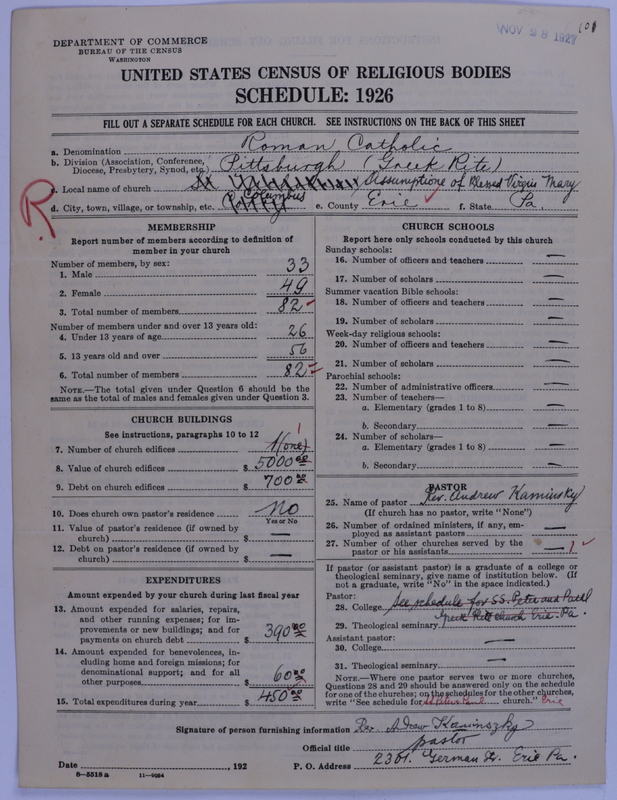 NOV 28 1927
DEPARTMENT OF COMMERCE
BUREAU OF THE CENSUS
WASHINGTON
UNITED STATES CENSUS OF RELIGIOUS BODIES
SCHEDULE: 1926
FILL OUT A SEPARATE SCHEDULE FOR EACH CHURCH. SEE INSTRUCTIONS ON THE BACK OF THIS SHEET
a. Denomination Roman Catholic
b. Division (Association, Conference, Diocese, Presbytery, Synod, etc.) Pittsburgh (Greek Rite)
R
c. Local name of church Assumptione of Blessed Virgin Mary
d. City, town, village, or township, etc. Columbus e. County Erie f. State Pa.
MEMBERSHIP
Report number of members according to definition of member in your church
Number of members, by sex:
1. Male 33
2. Female 49
3. Total number of members 82
Number of members under and over 13 years old:
4. Under 13 years of age 26
5. 13 years old and over 56
6. Total number of members 82
NOTE.—The total given under Question 6 should be the same as the total of males and females given under Question 3.
CHURCH BUILDINGS
See instructions, paragraphs 10 to 12
7. Number of church edifices 1 (one)
8. Value of church edifices $ 5000 00
9. Debt on church edifices $ 700 00
10. Does church own pastor's residence No
Yes or No
11. Value of pastor's residence (if owned by church) $ —
12. Debt on pastor's residence (if owned by church) $ —
EXPENDITURES
Amount expended by your church during last fiscal year
13. Amount expended for salaries, repairs, and other running expenses; for improvements or new buildings; and for payments on church debt $ 390 00
14. Amount expended for benevolences, including home and foreign missions; for denominational support; and for all other purposes $ 60 00
15. Total expenditures during year $ 450 00
CHURCH SCHOOLS
Report here only schools conducted by this church
Sunday schools:
16. Number of officers and teachers —
17. Number of scholars —
Summer vacation Bible schools:
18. Number of officers and teachers —
19. Number of scholars —
Week-day religious schools:
20. Number of officers and teachers —
21. Number of scholars —
Parochial schools:
22. Number of administrative officers —
23. Number of teachers—
a. Elementary (grades 1 to 8) —
b. Secondary —
24. Number of scholars—
a. Elementary (grades 1 to 8) —
b. Secondary —
PASTOR
25. Name of pastor Rev. Andrew Kaminsky
(If church has no pastor, write "None")
26. Number of ordained ministers, if any, employed as assistant pastors —
27. Number of other churches served by the pastor or his assistants — 1
If pastor (or assistant pastor) is a graduate of a college or theological seminary, give name of institution below. (If not a graduate, write "No" in the space indicated.)
Pastor:
28. College See schedule for S.S. Peter and Paul
29. Theological seminary Greek Rite church Erie. Pa.
Assistant pastor:
30. College —
31. Theological seminary —
NOTE.—Where one pastor serves two or more churches, Questions 28 and 29 should be answered only on the schedule for one of the churches; on the schedules for the other churches, write "See schedule for church." Erie
Signature of person furnishing information Rev. Andrew Kaminszky
Official title pastor
Date , 192 P. O. Address 2301. German St. Erie Pa.
8—5518 a 11—9084